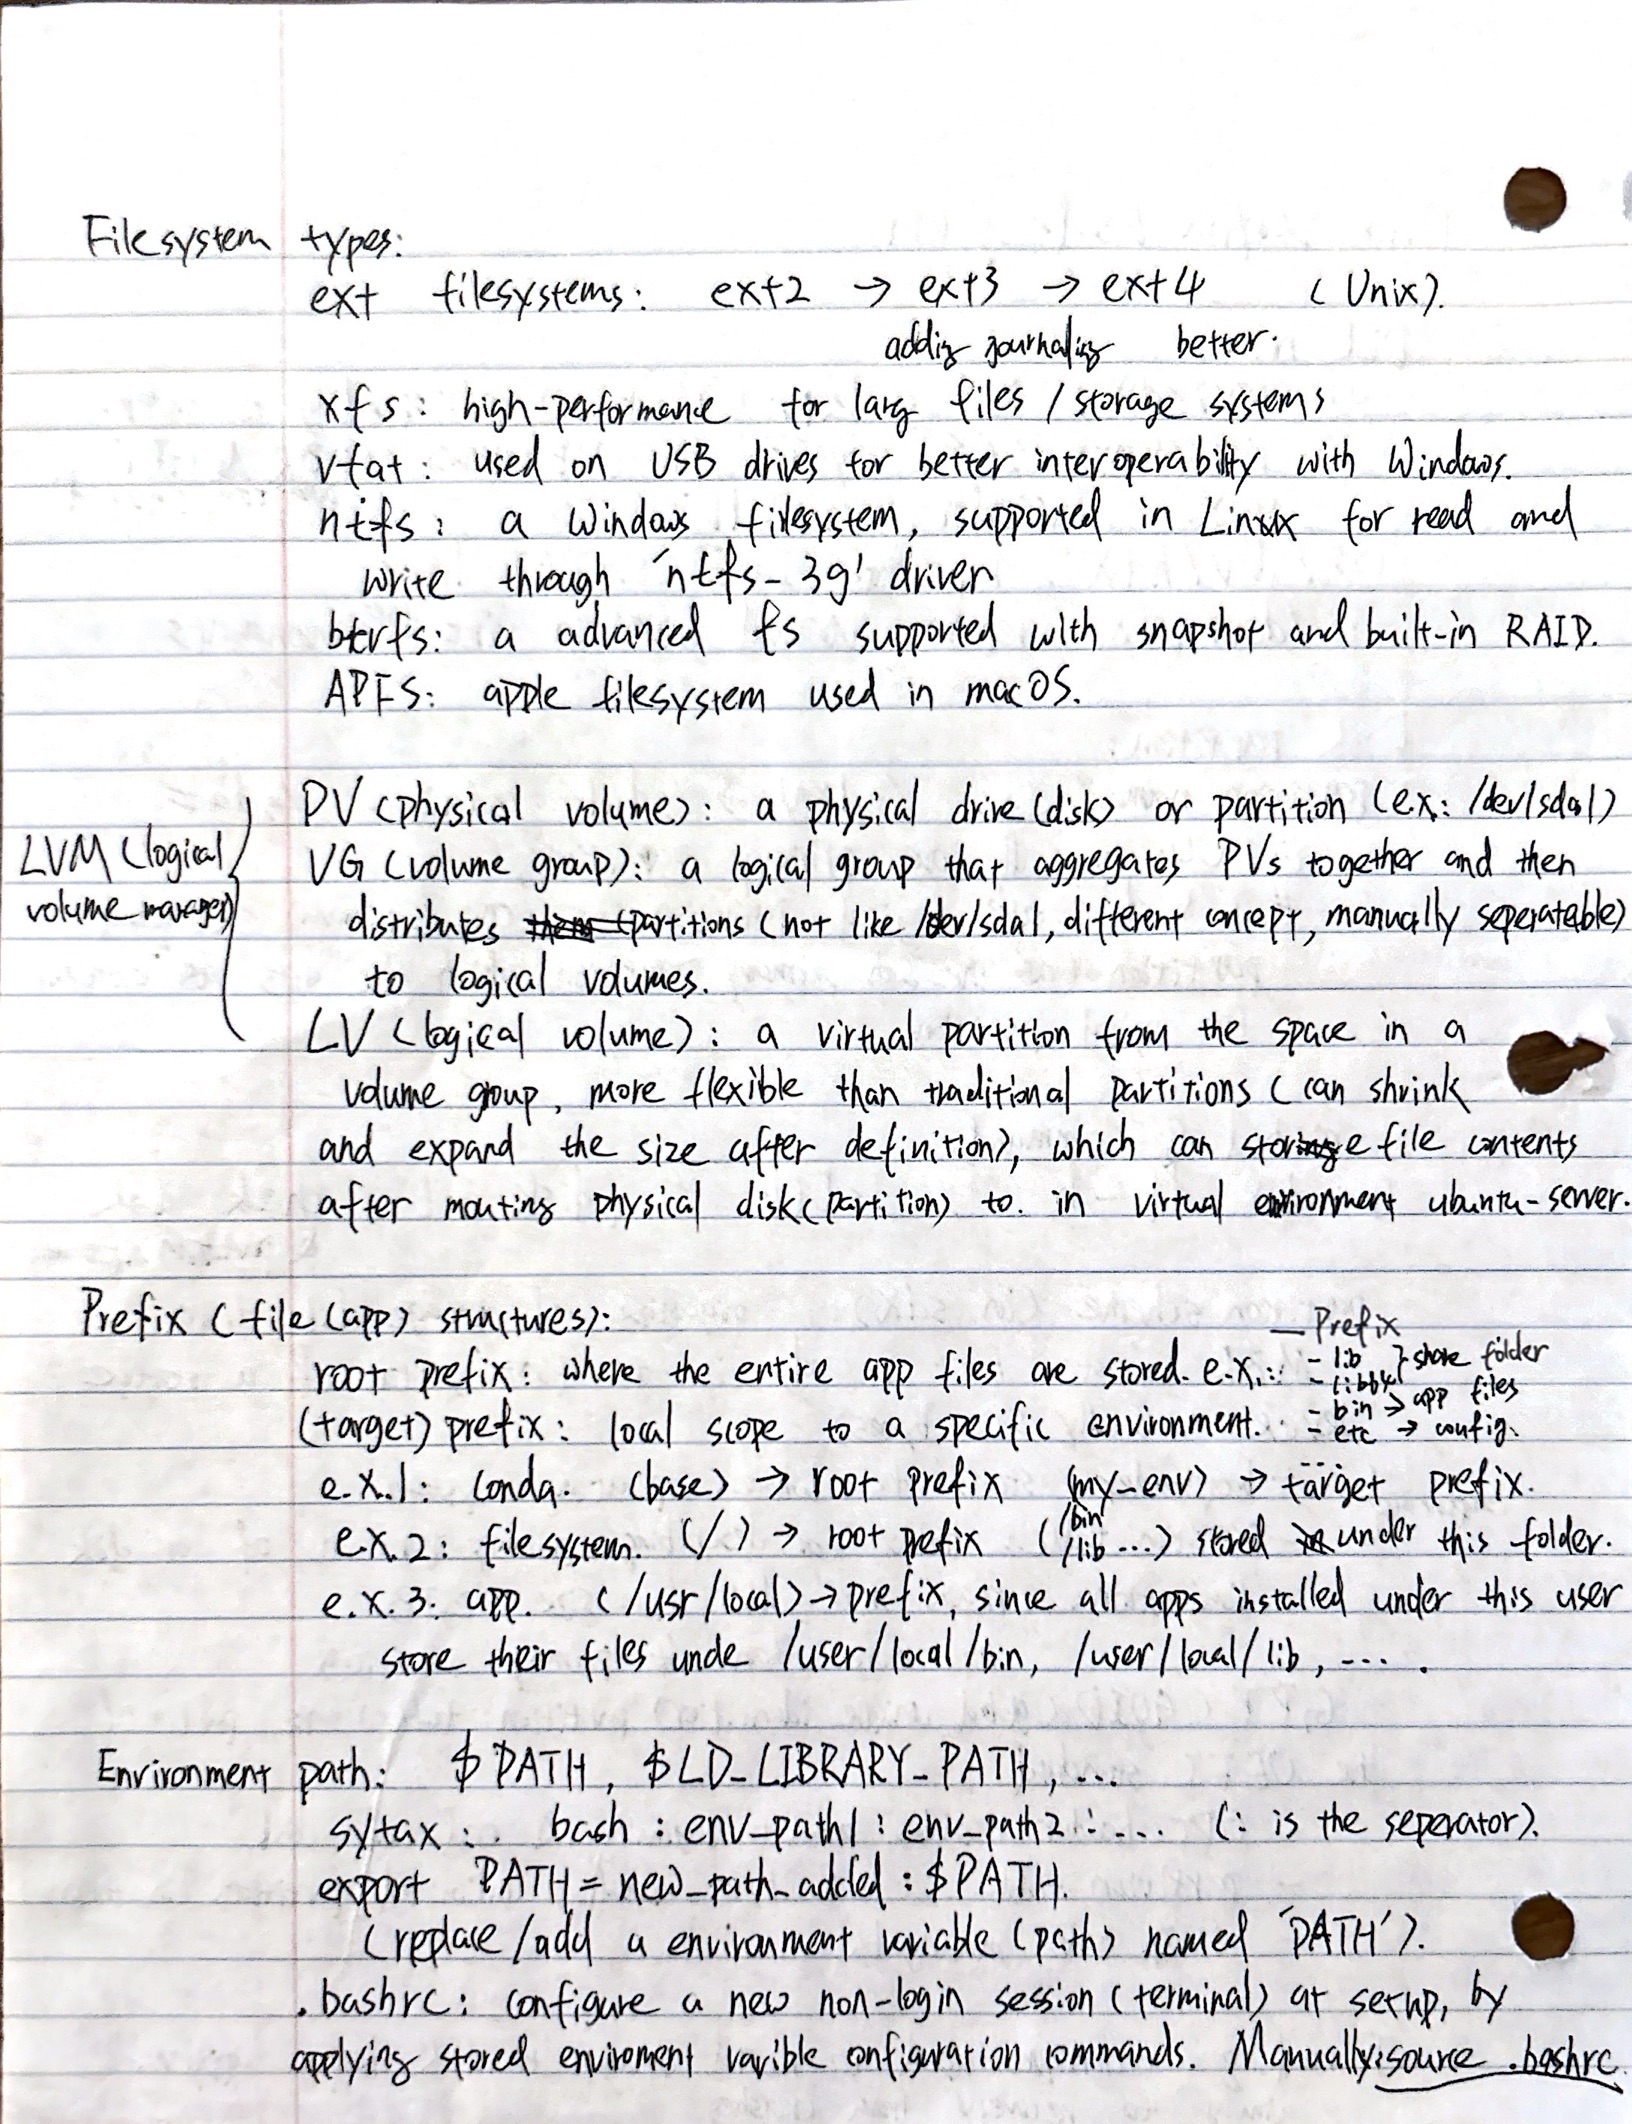 Filesystem types:
ext filesystems: ext2 → ext3 → ext4 (Unix).
adding journaling better.
xfs: high-performance for larg files / storage systems
vfat: used on USB drives for better interoperability with Windows.
ntfs: a Windows filesystem, supported in Linux for read and
write through 'ntfs-3g' driver
btrfs: a advanced fs supported with snapshot and built-in RAID.
APFS: apple filesystem used in macOS.
LVM (logical
volume manager)
PV (physical volume): a physical drive (disk) or partition (ex: /dev/sda1)
VG (volume group): a logical group that aggregates PVs together and then
distributes partitions (not like /dev/sda1, different concept, manually seperatable)
to logical volumes.
LV (logical volume): a virtual partition from the space in a
volume group, more flexible than traditional partitions (can shrink
and expand the size after definition), which can store file contents
after mouting physical disk (partition) to. in virtual environment ubuntu-server.
Prefix (file (app) structures):
root prefix: where the entire app files are stored. e.x.:
— Prefix
- lib } share folder
- lib64
- bin → app files
- etc → config.
...
(target) prefix: local scope to a specific environment.
e.x.1: conda. (base) → root prefix (my_env) → target prefix.
e.x.2: filesystem. (/) → root prefix (/bin /lib ...) stored under this folder.
e.x.3: app. (/usr/local) → prefix, since all apps installed under this user
store their files unde /user/local/bin, /user/local/lib, ... .
Environment path: $PATH, $LD_LIBRARY_PATH, ...
sytax: bash : env_path1 : env_path2 : ... (: is the seperator).
export PATH = new_path_added : $PATH.
(replace/add a environment variable (path) named 'PATH').
.bashrc: configure a new non-login session (terminal) at setup, by
applying stored enviroment varible configuration commands. Manually: source .bashrc